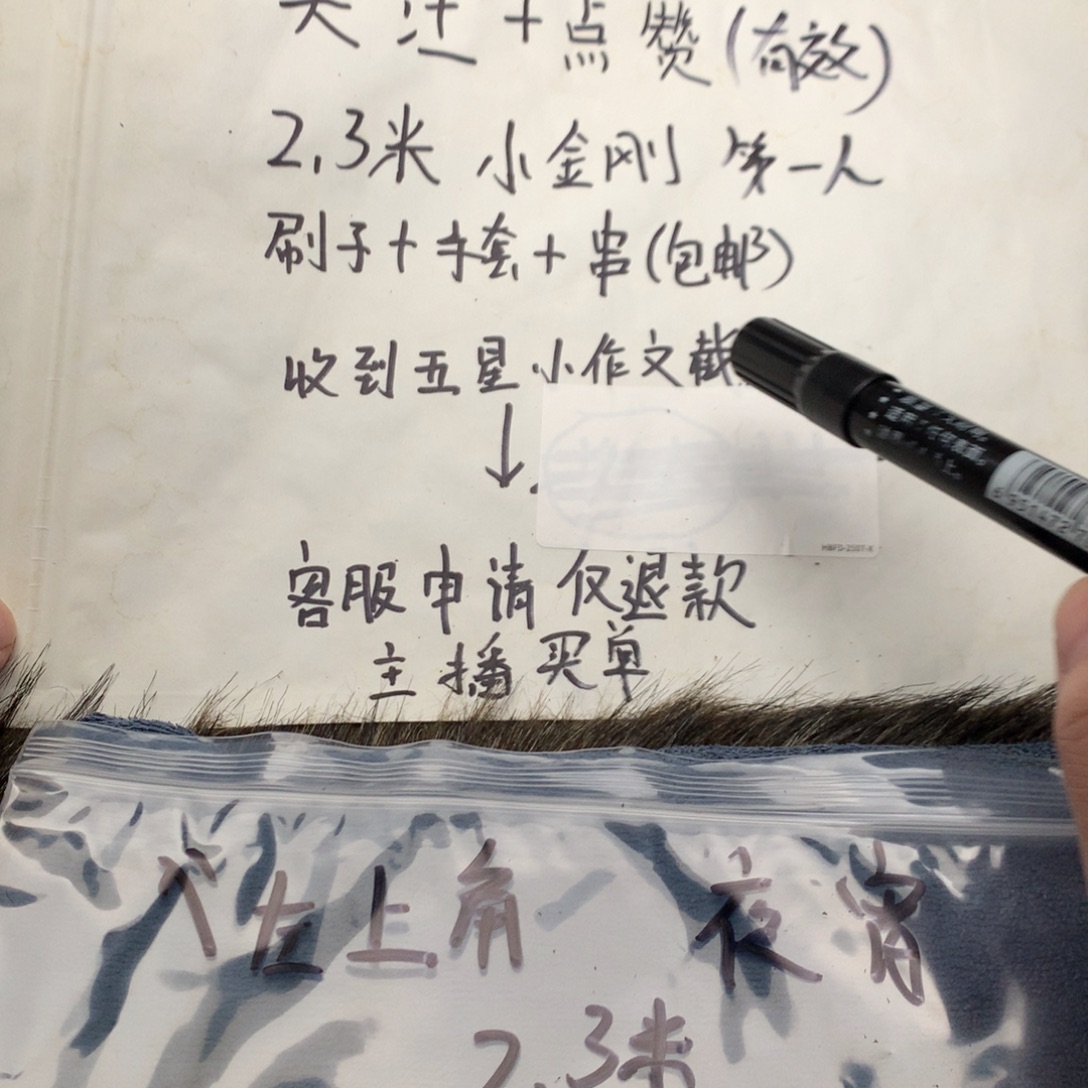 关注+点赞(有效)
2.3米 小金刚 第一人
刷子+手套+串(包邮)
收到五星小作文截
↓
HBFG-2507-8
客服申请仅退款
主播买单
左上角 夜宵
2.3米